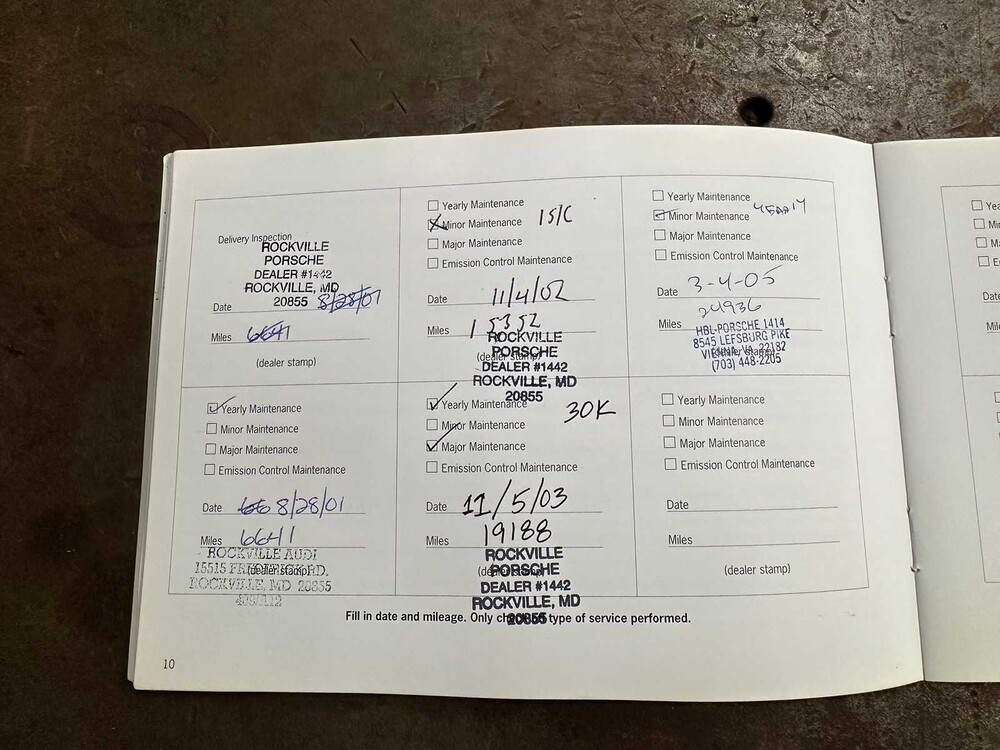 Delivery Inspection
ROCKVILLE
PORSCHE
DEALER #1442
ROCKVILLE, MD
20855
Date 8/28/01
Miles 6641
(dealer stamp)
Yearly Maintenance
Minor Maintenance 15/C
Major Maintenance
Emission Control Maintenance
Date 11/4/02
Miles 15352
ROCKVILLE
PORSCHE
(dealer stamp)
DEALER #1442
ROCKVILLE, MD
20855
Yearly Maintenance
Minor Maintenance
Major Maintenance
Emission Control Maintenance
Date 3-4-05
Miles 24936
HBL-PORSCHE 1414
8545 LEESBURG PIKE
VIENNA, VA. 22182
(dealer stamp)
(703) 448-2205
Yearly Maintenance
Minor Maintenance
Major Maintenance
Emission Control Maintenance
Date 8/28/01
Miles 6641
ROCKVILLE AUDI
15515 FREDERICK RD.
(dealer stamp)
ROCKVILLE, MD 20855
Yearly Maintenance 30K
Minor Maintenance
Major Maintenance
Emission Control Maintenance
Date 11/5/03
Miles 19188
ROCKVILLE
PORSCHE
(dealer stamp)
DEALER #1442
ROCKVILLE, MD
20855
Yearly Maintenance
Minor Maintenance
Major Maintenance
Emission Control Maintenance
Date
Miles
(dealer stamp)
Fill in date and mileage. Only check type of service performed.
10